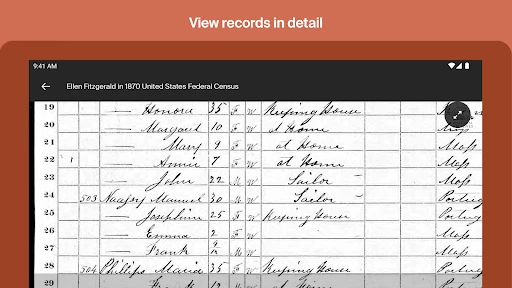 View records in detail
9:41 AM
Ellen Fitzgerald in 1870 United States Federal Census
19 — Honora 35 F W Keeping House
20 — Margaret 10 F W at Home
21 — Mary 9 F W at Home Mass
22 1 — Annie 7 F W at Home Mass
23 — John 22 M W Sailor Mass
24 503 Manuel 30 M W Sailor
25 — Josephine 25 F W Keeping House
26 — Emma 2 F W Mass
27 — Frank M W Mass
28 504 Phillips Maria 35 F W Keeping House
29